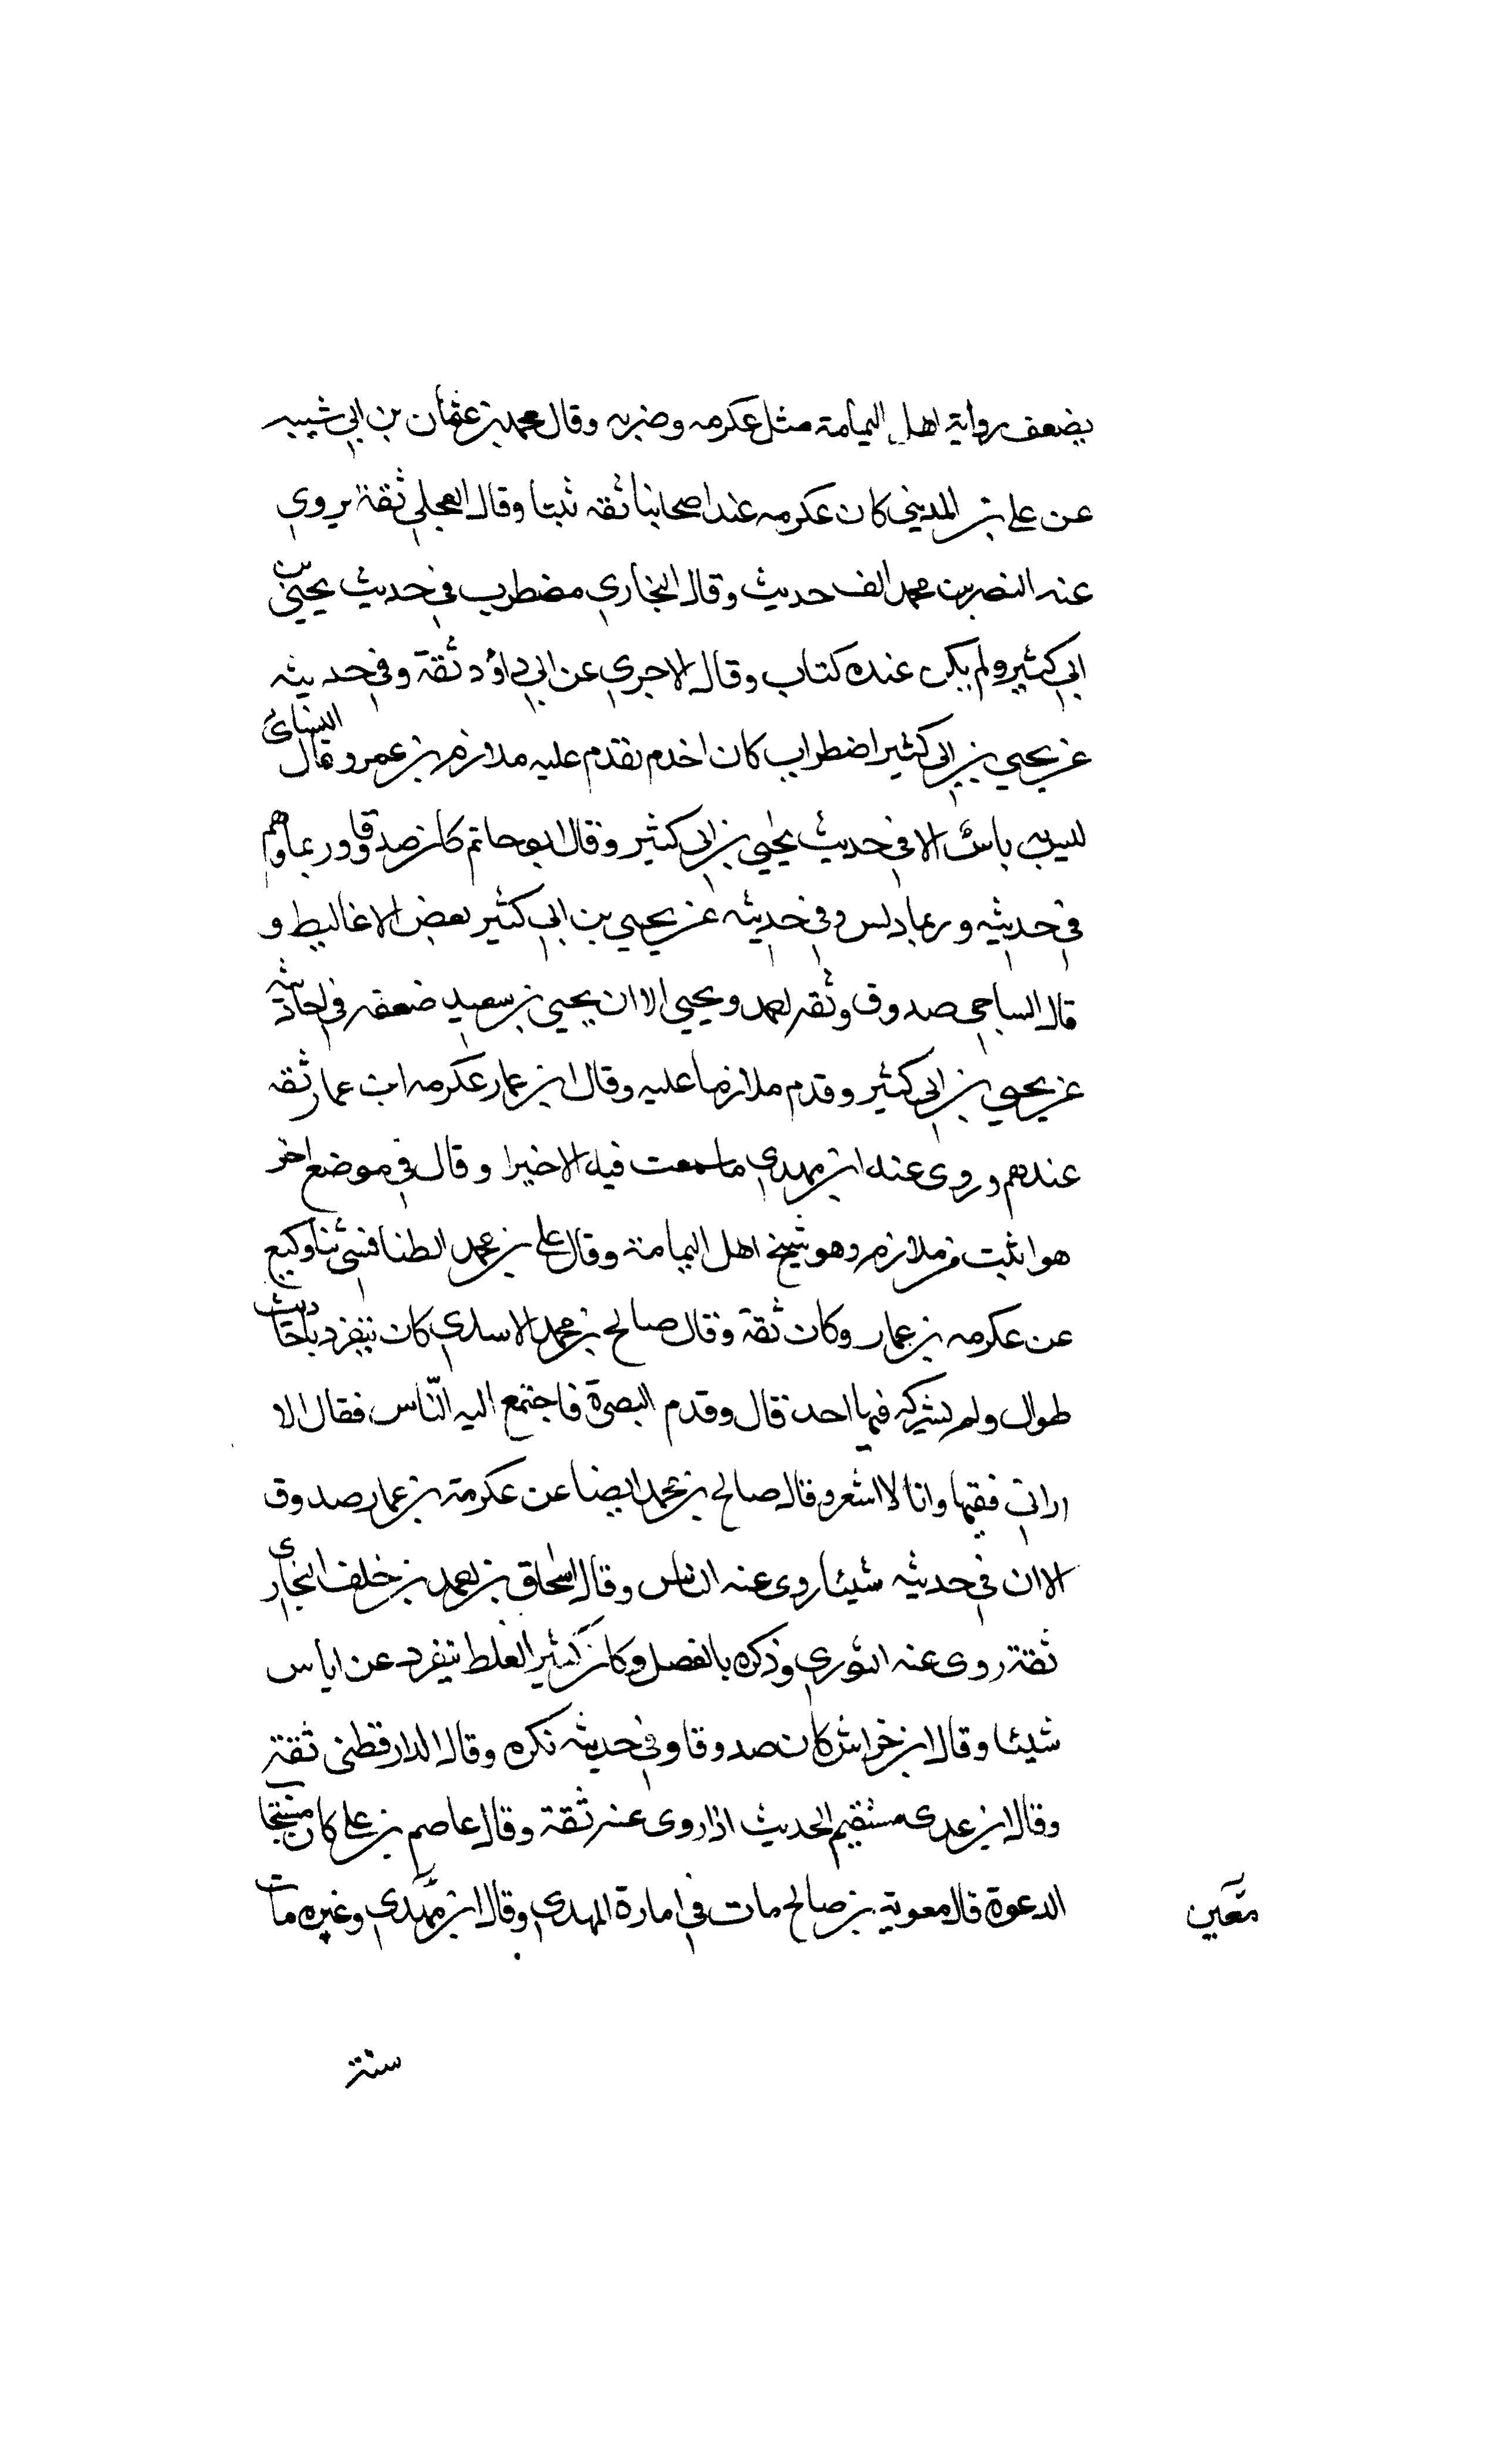 يضعف رواية اهل اليمامة مثل عكرمه وضربه وقال محمد بن عثمان بن ابي شيبه
عن علي بن المديني كان عكرمه عند اصحابنا ثقه ثبتا وقال العجلي ثقة يروي
عنه النضر بن محمد الف حديث وقال البخاري مضطرب في حديث يحيى بن
ابي كثير ولم يكن عنده كتاب وقال الاجري عن ابي داؤد ثقة وفي حديثه
عن يحيي بن ابي كثير اضطراب كان احمد يقدم عليه ملازم بن عمرو وقال النسائى
ليس به باس الا في حديث يحيي بن ابي كثير وقال ابو حاتم كان صدوقا وربما وهم
في حديثه وربما دلس وفي حديثه عن يحيي بن ابي كثير بعض الاغاليط و
قال الساجي صدوق وثقه احمد ويحيي الا ان يحيي بن سعيد ضعفه في احاديثه
عن يحيي بن ابي كثير وقدم ملازما عليه وقال ابن عمار عكرمه ابن عمار ثقه
عندهم وروى عنه ابن مهدي ما سمعت فيه الا خيرا وقال في موضع اخر
هو اثبت من ملازم وهو شيخ اهل اليمامة وقال علي بن محمد الطنافسي ثنا وكيع
عن عكرمه بن عمار وكان ثقة وقال صالح بن محمد الاسدي كان يتفرد باحاديث
طوال ولم يشركه فيها احد قال وقدم البصرة فاجتمع اليه النّاس فقال الا
اراني فقيها وانا لا اشعر وقال صالح بن محمد ايضا عن عكرمة بن عمار صدوق
الا ان في حديثه شيئا روى عنه الناس وقال اسحاق بن احمد بن خلف البخاري
ثقة روى عنه الثوري وذكره بالفضل وكان كثير الغلط يتفرد عن اياس
شيئا وقال ابن خراش كان صدوقا وفي حديثه نكره وقال الدارقطنى ثقة
وقال ابن عدى مستقيم الحديث اذا روى عنه ثقة وقال عاصم بن علي كان مستجاب
الدعوة قال معوية بن صالح مات في امارة المهدي وقال ابن مهدي وغيره مات
معين
سنة